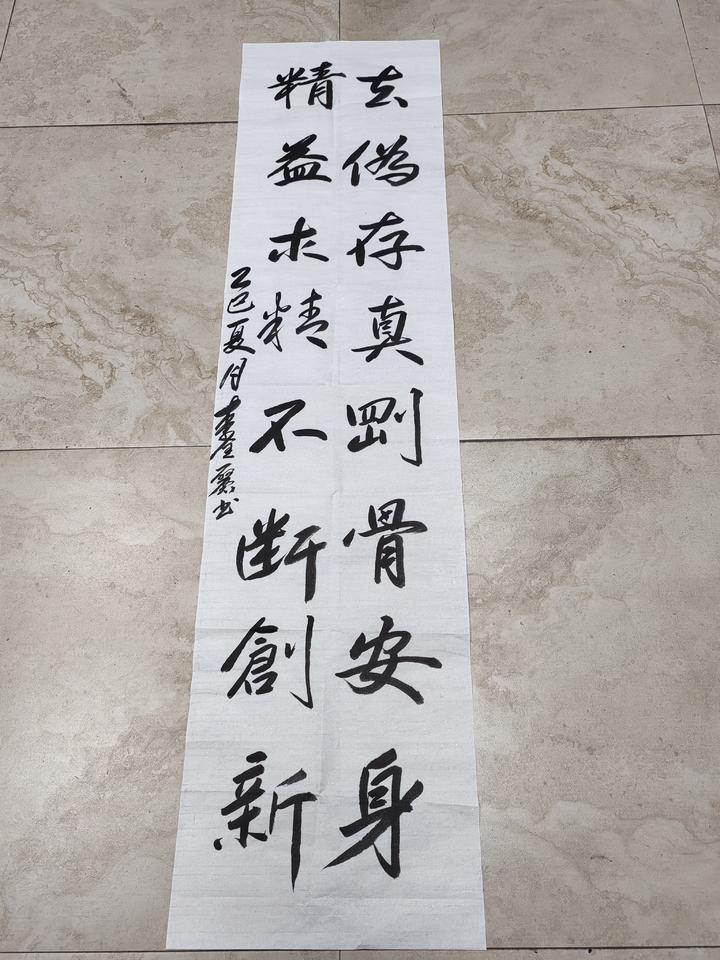 去偽存真剛骨安身
精益求精不断創新
乙巳夏月
書